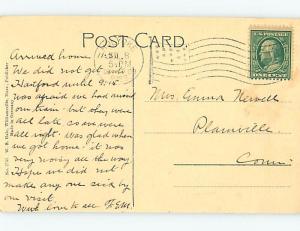 POST CARD.
U.S. POSTAGE
ONE CENT
Arrived home.
We did not get into
Hartford until 9:15
was afraid we had missed
our train - but they were
all late so we were
all right. Was glad when
we got home it was
very noisy all the way.
Hope we did not
make any one sick by
our visit.
With love to all F.E.M.
Mrs. Emma Newell
Plainville
Conn.